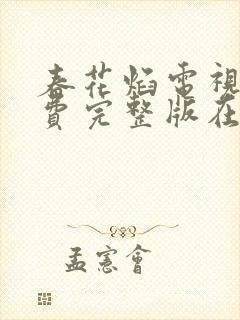 春花焰電視
費完整版在
孟憲會